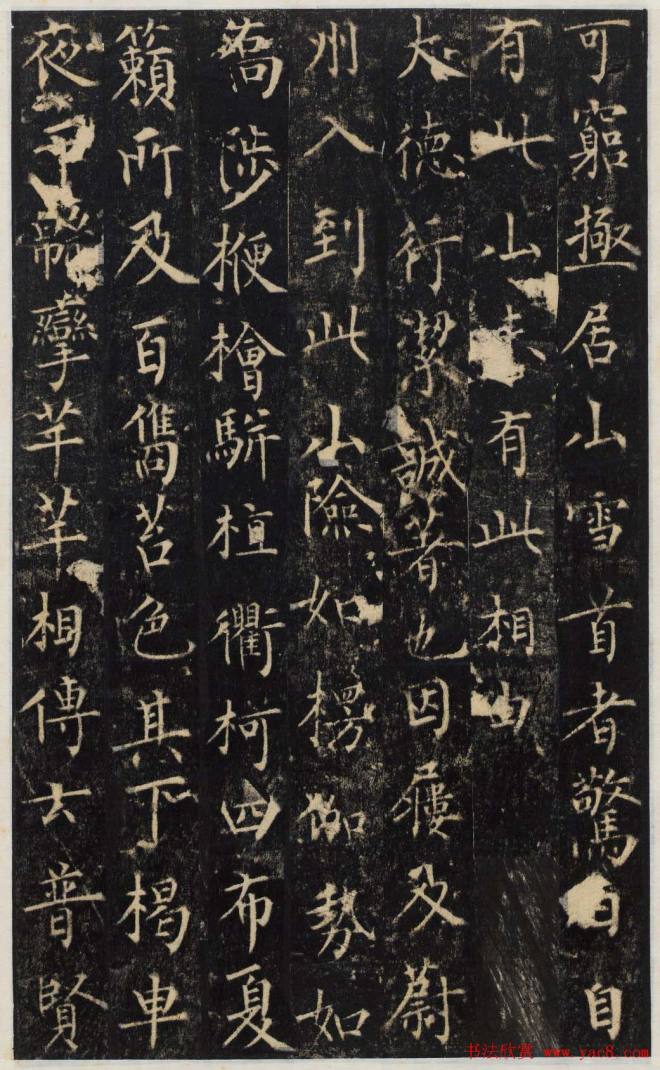 可窮極居山雪首者驚曰自
有此山未有此相由
大德行絜誠著也因屨及蔚
州入到此山險如楞伽勢如
喬陟楩檜駢植衢柯四布夏
籟所及百雋苔色其下楬車
夜干攣芊芊相傳云普賢
书法欣赏 www.yac8.com